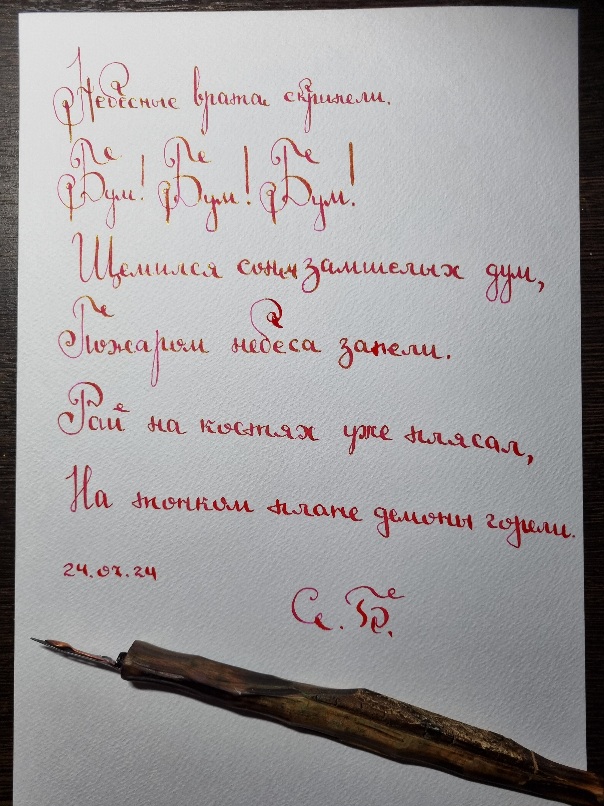 Небесные врата скрипели.
Бум! Бум! Бум!
Щемился сонм замшелых дум,
Пожаром небеса запели.
Рай на костях уже плясал,
На тонком плане демоны горели.
24.07.24
Са. Бр.